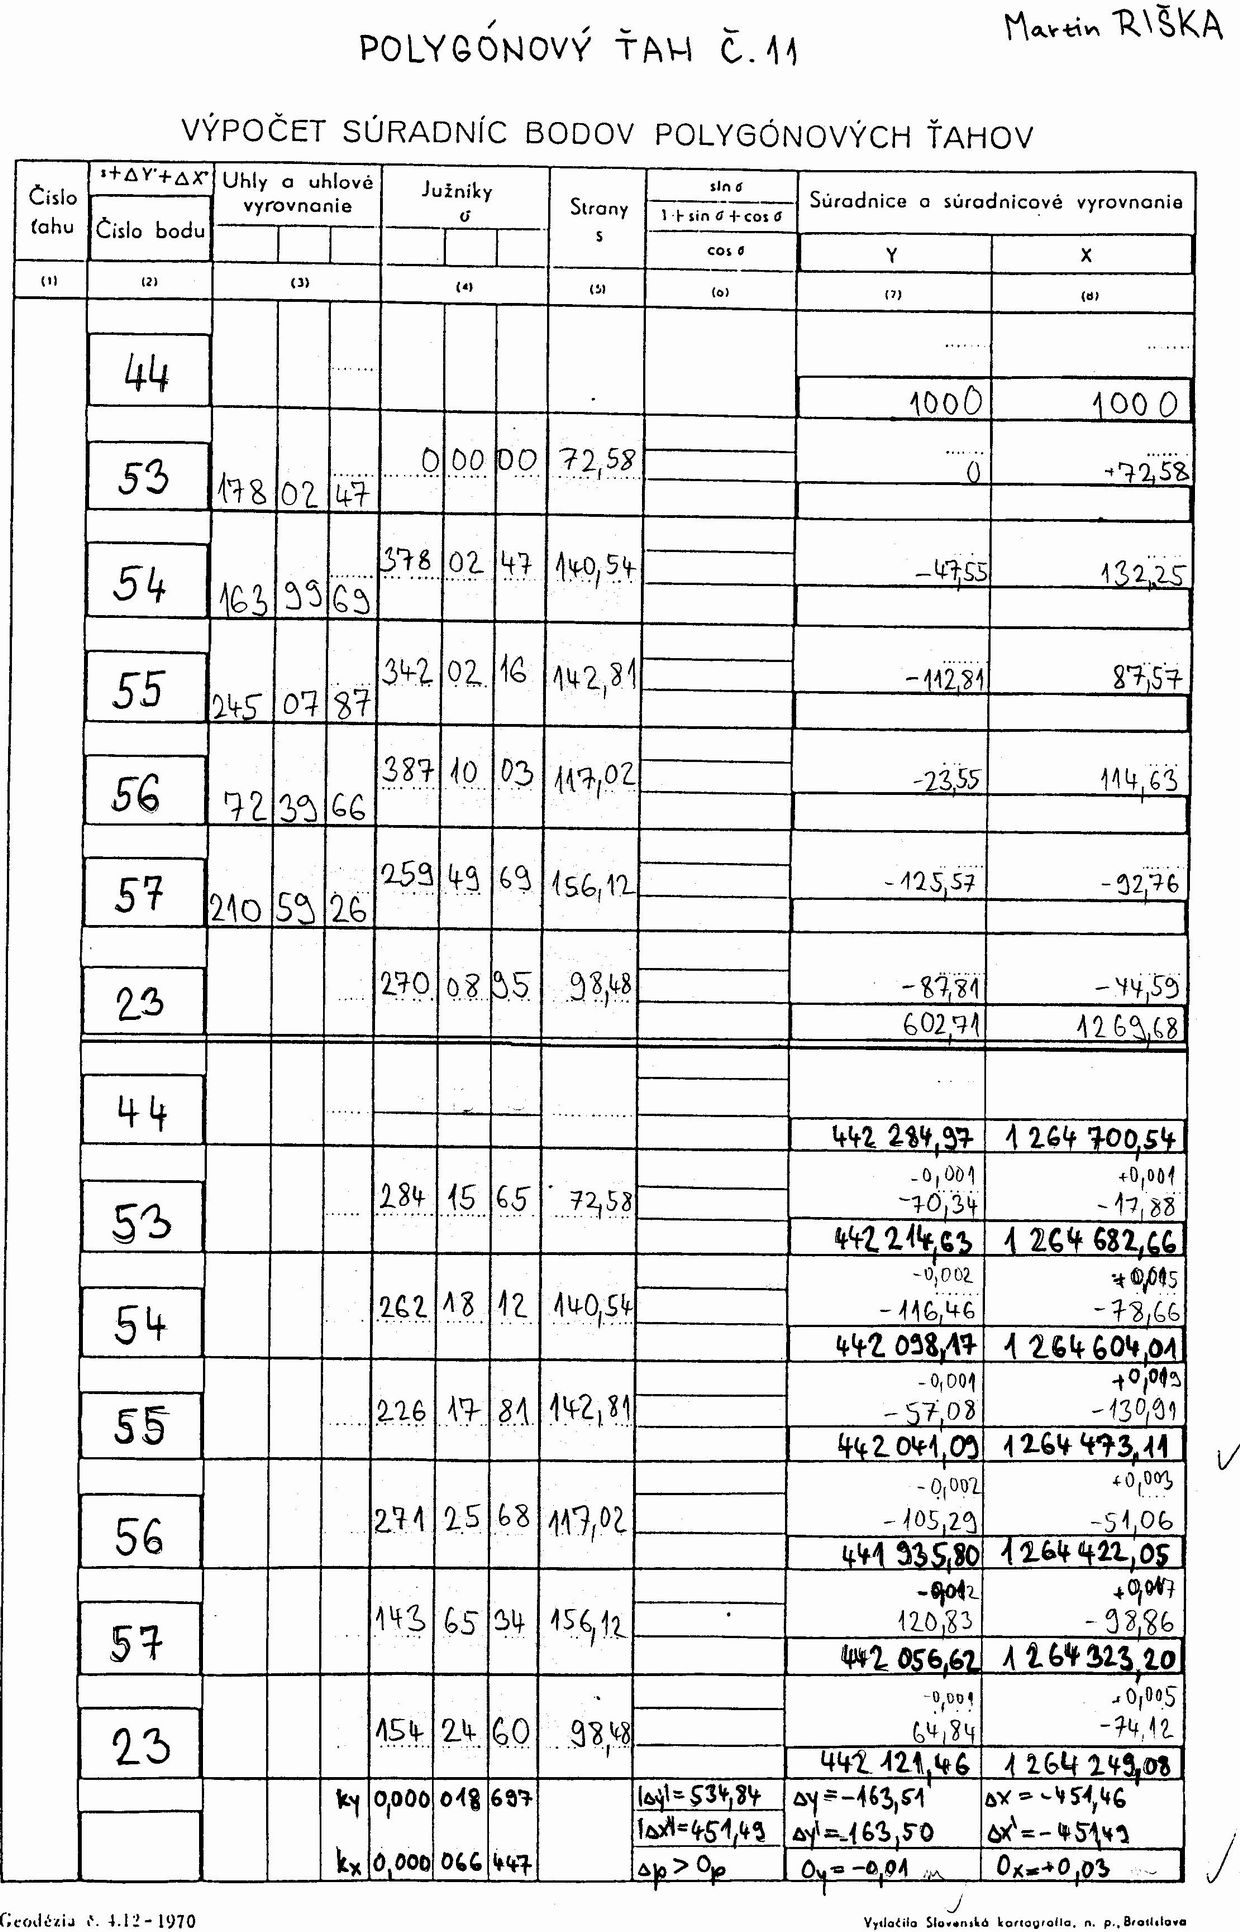 Martin RIŠKA
POLYGÓNOVÝ ŤAH Č. 11
VÝPOČET SÚRADNÍC BODOV POLYGÓNOVÝCH ŤAHOV
Číslo ťahu
s+ΔY'+ΔX'
Číslo bodu
Uhly a uhlové vyrovnanie
Južníky σ
Strany s
sin σ
1+sin σ+cos σ
cos σ
Súradnice a súradnicové vyrovnanie
Y X
(1) (2) (3) (4) (5) (6) (7) (8)
44
1000 1000
53 0 00 00 72,58 0 +72,58
178 02 47
54 378 02 47 140,54 -47,55 132,25
163 99 69
55 342 02 16 142,81 -112,81 87,57
245 07 87
56 387 10 03 117,02 -23,55 114,63
72 39 66
57 259 49 69 156,12 -125,57 -92,76
210 59 26
23 270 08 95 98,48 -87,81 -44,59
602,71 1269,68
44
442 284,97 1 264 700,54
-0,001 +0,001
53 284 15 65 72,58 -70,34 -17,88
442 214,63 1 264 682,66
-0,002
54 262 18 12 140,54 -116,46 -78,66
442 098,17 1 264 604,01
-0,001
55 226 17 81 142,81 -57,08 -130,91
442 041,09 1 264 473,11
-0,002 +0,003
56 271 25 68 117,02 -105,29 -51,06
441 935,80 1 264 422,05
57 143 65 34 156,12 120,83 -98,86
442 056,62 1 264 323,20
-0,001 +0,005
23 154 24 60 98,48 64,84 -74,12
442 121,46 1 264 249,08
ky 0,000 018 697 |Δy'|=534,84 Δy=-163,51 Δx=-451,46
|Δx'|=451,49 Δy'=-163,50 Δx'=-451,49
kx 0,000 066 447 Δp > Op Oy=-0,01 m Ox=+0,03 m
Geodézia č. 4.12-1970
Vytlačila Slovenská kartografia, n. p., Bratislava